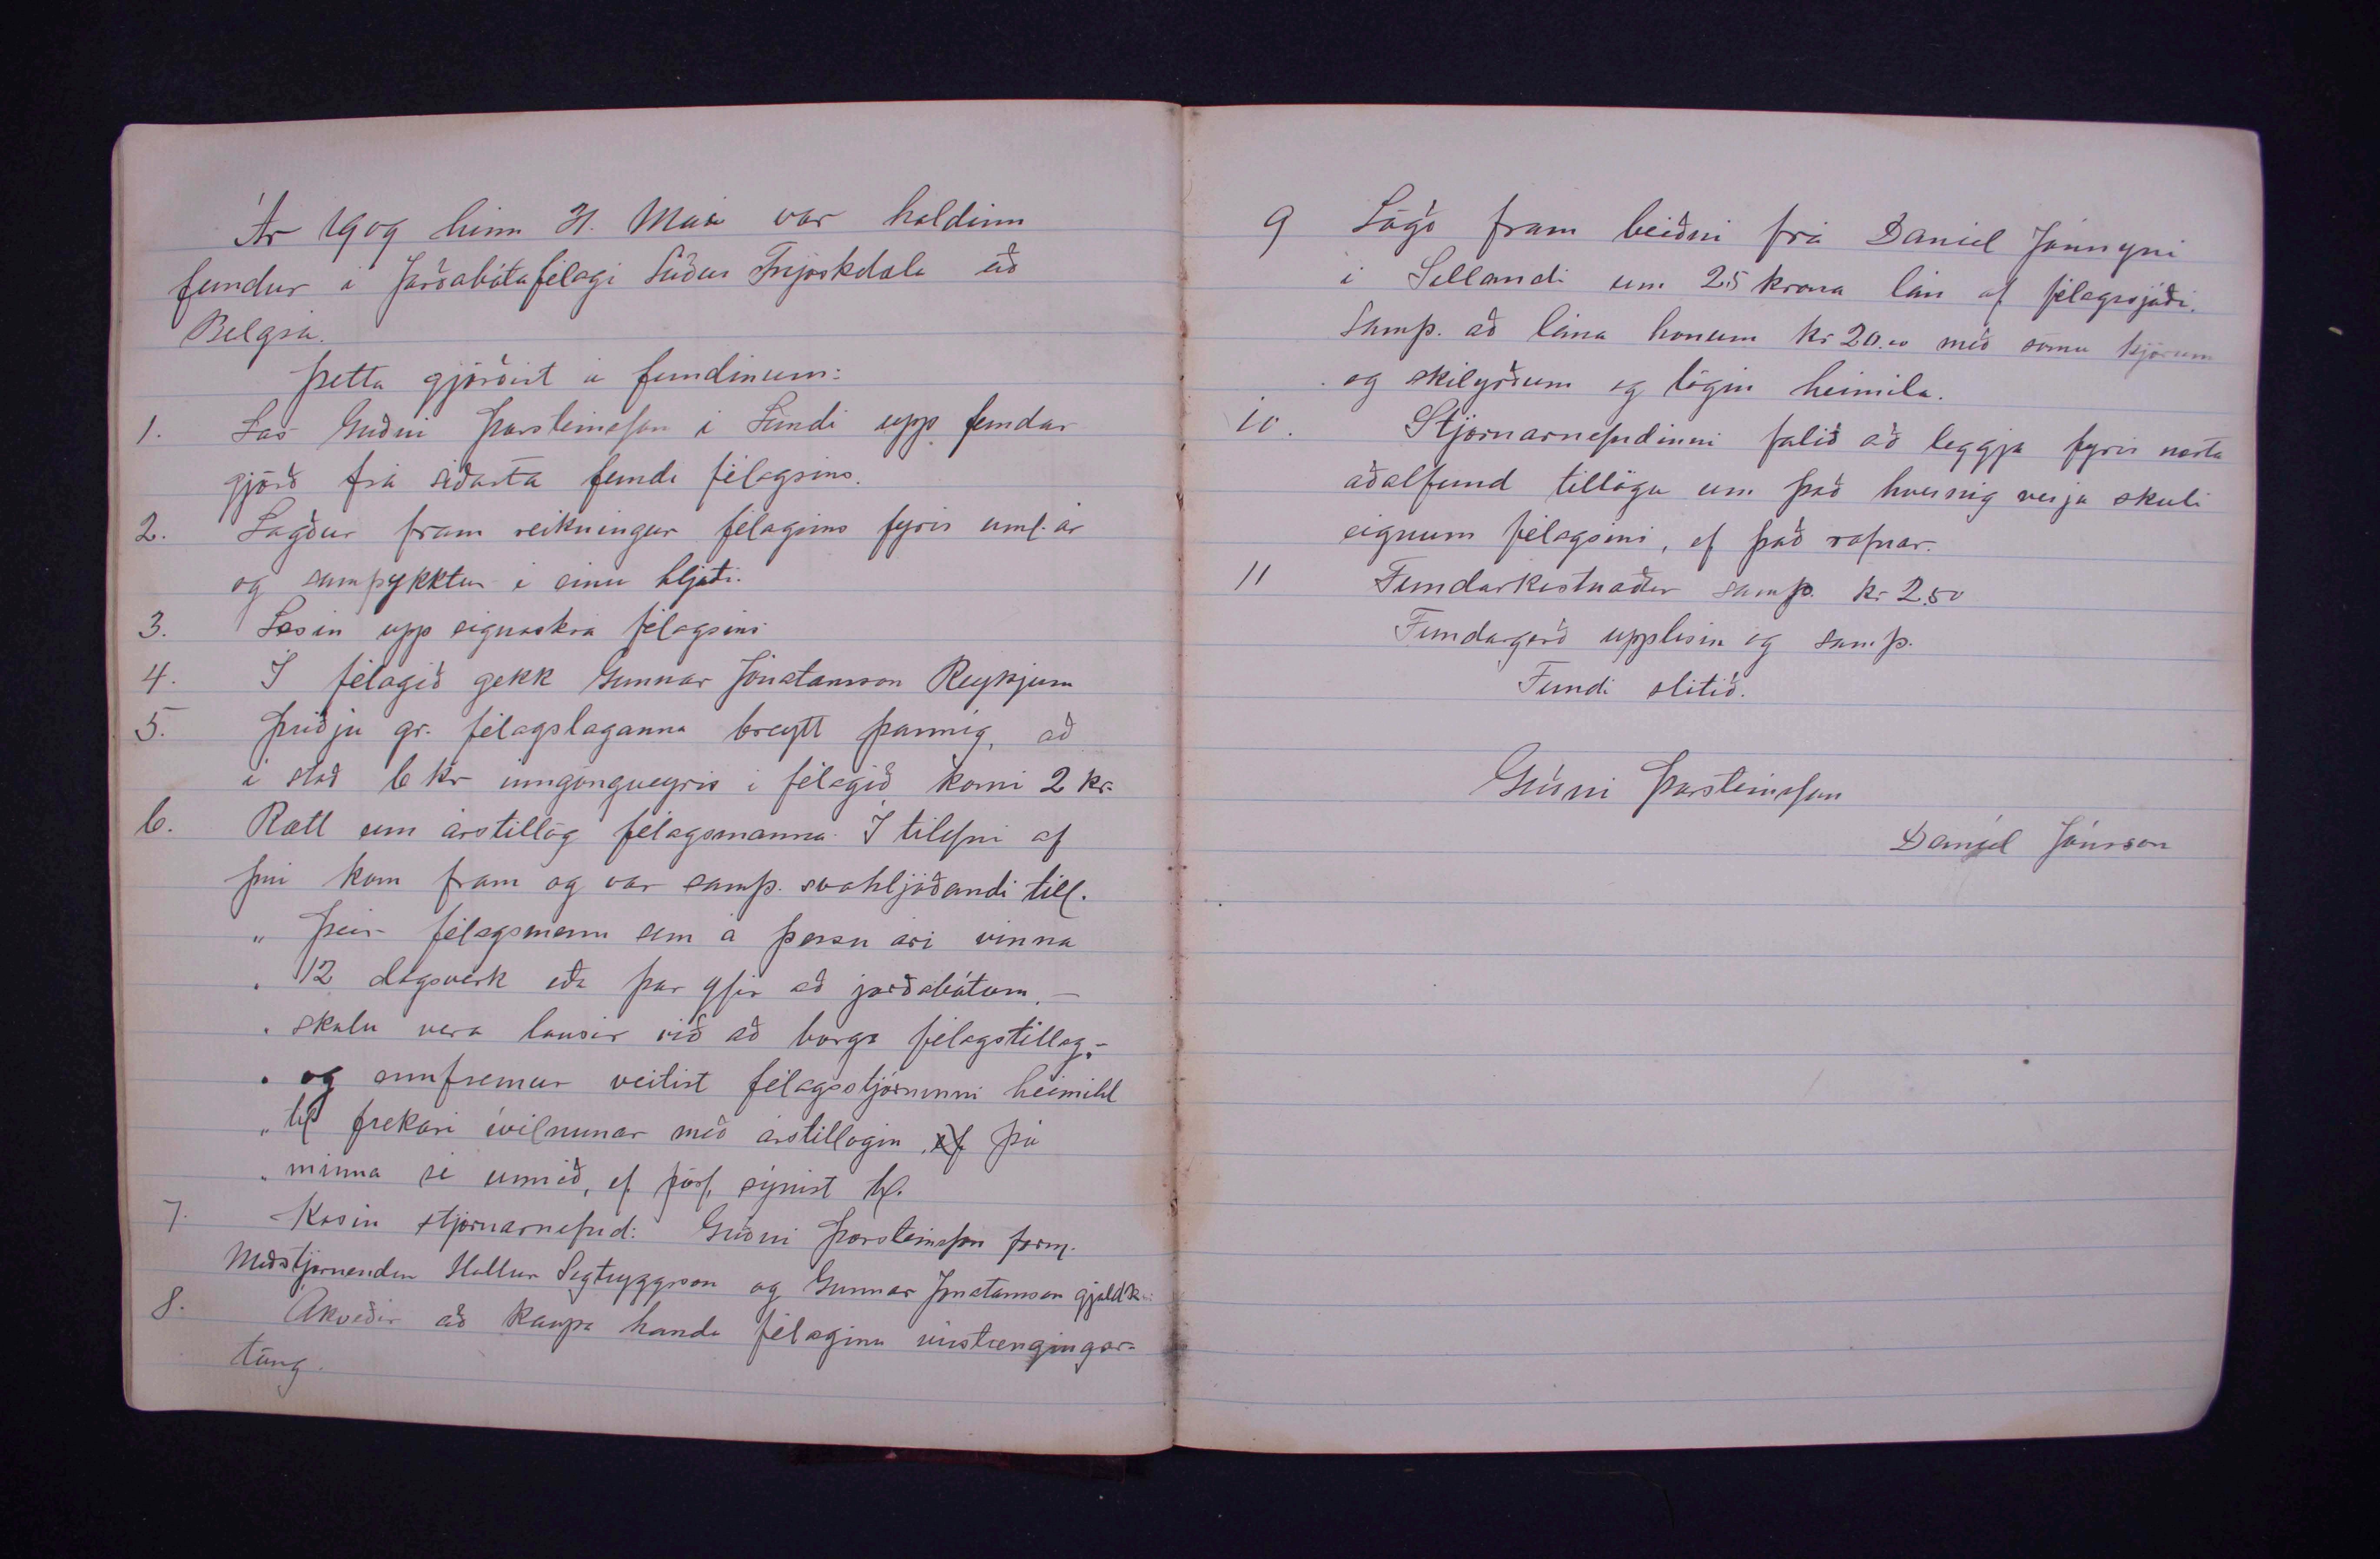 Ár 1909 hinn 31. Maí var haldinn
fundur í Jarðabótafélagi Suður Fnjóskdæla að
Belgsá.
Þetta gjörðist á fundinum:
1. Las Guðni Þorsteinsson í Lundi upp fundar
gjörð frá síðasta fundi félagsins.
2. Lagður fram reikningur félagsins fyrir uml. ár
og samþykktur í einu hljóði.
3. Lesin upp eignaskrá félagsins
4. Í félagið gekk Gunnar Jónatansson Reykjum
5. Þriðju gr. félagslaganna breytt þannig, að
í stað 6 kr inngöngueyris í félagið komi 2 kr
6. Rætt um árstillög félagsmanna. Í tilefni af
því kom fram og var samþ. svohljóðandi till.
„ Þeir félagsmenn sem á þessu ári vinna
„ 12 dagsverk eða þar yfir að jarðabótum, –
„ skulu vera lausir við að borga félagstillag, –
„ og ennfremur veitist félagsstjórninni heimild
„ til frekari ívilnunar með árstillögin, ef þó
„ minna sé unnið, ef þörf sýnist til.
7. Kosin stjórnarnefnd: Guðni Þorsteinsson form.
Meðstjórnendur Hallur Sigtryggsson og Gunnar Jónatansson gjaldk.
8. Ákveðið að kaupa handa félaginu vírstrengingar-
töng.
9 Lögð fram beiðni frá Daníel Jónssyni
í Sellandi um 25 króna lán af félagssjóði.
Samþ. að lána honum kr 20.00 með sömu kjörum
og skilyrðum og lögin heimila.
10. Stjórnarnefndinni falið að leggja fyrir næsta
aðalfund tillögu um það hvernig verja skuli
eignum félagsins, ef það rofnar.
11 Fundarkostnaður samþ. kr 2,50
Fundargerð upplesin og samþ.
Fundi slitið.
Guðni Þorsteinsson
Daníel Jónsson